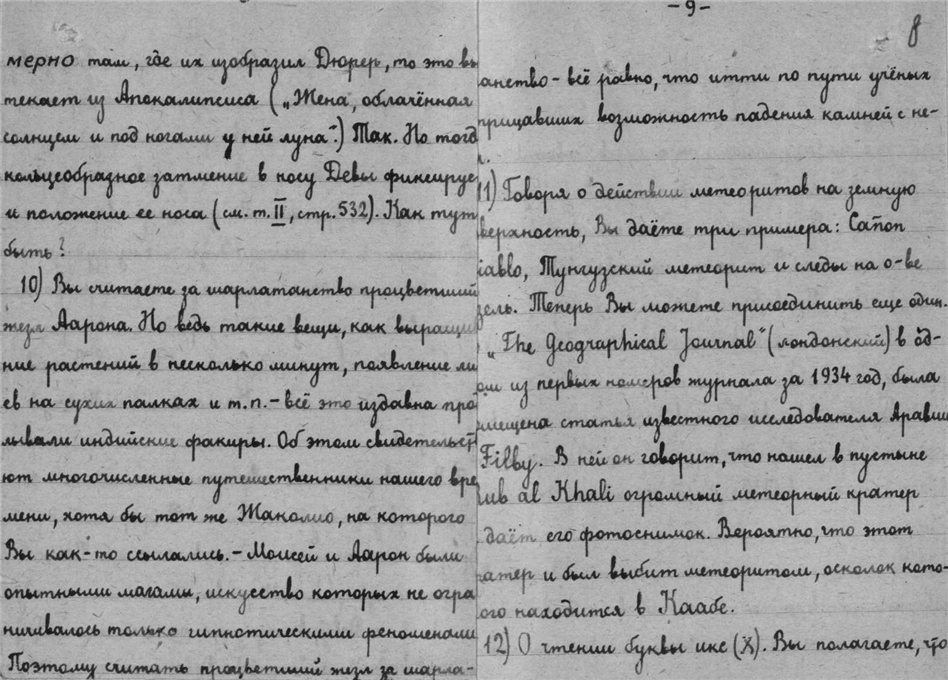 мерно там, где их изобразил Дюрер, то это вы
текает из Апокалипсиса („Жена, облачённая
солнцем и под ногами у ней луна“.) Так. Но тогд
кольцеобразное затмение в носу Девы фиксируе
и положение ее носа (см. т. II, стр. 532). Как тут
быть?
10) Вы считаете за шарлатанство процветший
жезл Аарона. Но ведь такие вещи, как выращи
ние растений в несколько минут, появление ли
ев на сухих палках и т.п. - всё это издавна про
лывали индийские факиры. Об этом свидетельст
ют многочисленные путешественники нашего вре
мени, хотя бы тот же Жаколио, на которого
Вы как-то ссылались. - Моисей и Аарон были
опытными магами, искусство которых не огра
ничивалось только гипнотическими феноменами
Поэтому считать процветший жезл за шарла-
-9-
8
анство - всё равно, что итти по пути учёных
трицавших возможность падения камней с не-
.
11) Говоря о действии метеоритов на земную
верхность, Вы даёте три примера: Cañon
iablo, Тунгузский метеорит и следы на о-ве
зель. Теперь Вы можете присоединить еще один.
„The Geographical Journal“ (лондонский) в од-
ом из первых номеров журнала за 1934 год, была
омещена статья известного исследователя Аравии
Filby. В ней он говорит, что нашел в пустыне
ub al Khali огромный метеорный кратер
даёт его фотоснимок. Вероятно, что этот
ратер и был выбит метеоритом, осколок кото-
ого находится в Каабе.
12) О чтении буквы икс (X). Вы полагаете, что